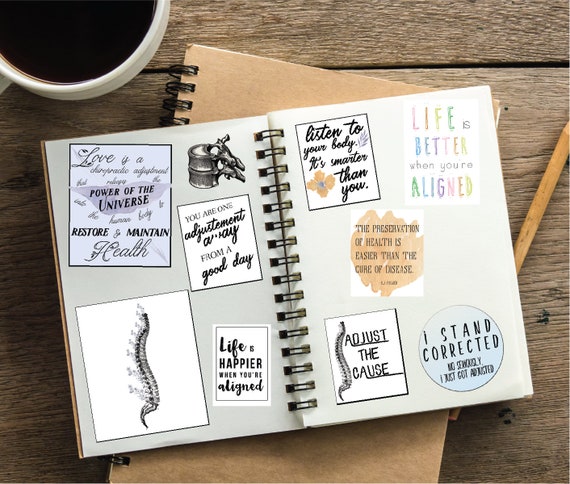 Love is a
chiropractic adjustment
that releases the
POWER OF THE
UNIVERSE
into the
the human body to
RESTORE & MAINTAIN
Health
YOU ARE ONE
adjustement
away
FROM A
good day
Life IS
HAPPIER
WHEN YOU'RE
aligned
listen to
your body.
It's smarter
than
you.
LIFE IS
BETTER
when you're
ALIGNED
THE PRESERVATION
OF HEALTH IS
EASIER THAN THE
CURE OF DISEASE.
B.J PALMER
ADJUST
THE
CAUSE
I STAND
CORRECTED
NO SERIOUSLY,
I JUST GOT ADJUSTED